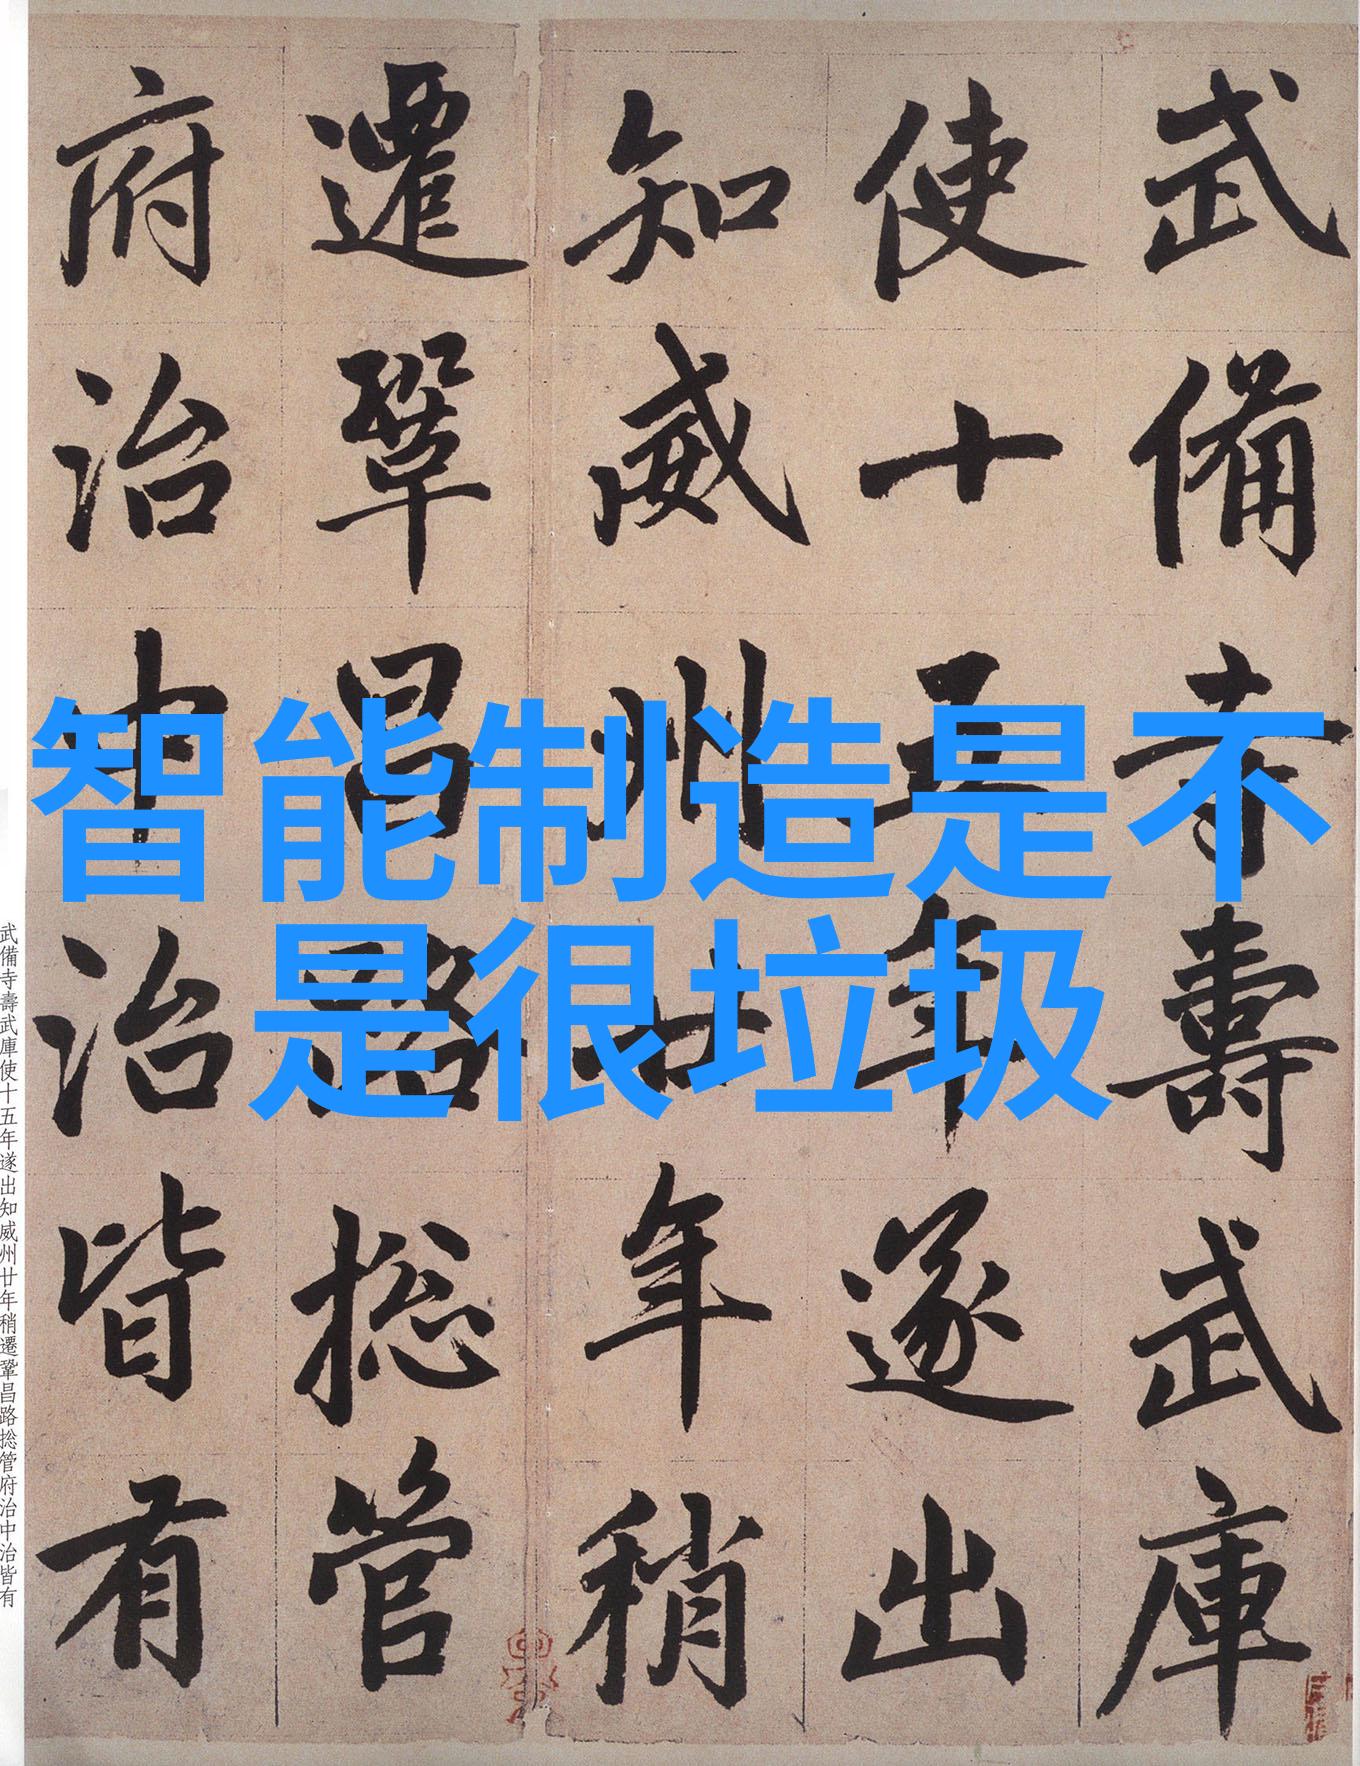 武備寺壽武庫
使十五年遂出
知威州廿年稍
遷鞏昌路捴管
府治中治皆有
智能制造是不
是很垃圾
武備寺壽武庫使十五年遂出知威州廿年稍遷鞏昌路捴管府治中治皆有